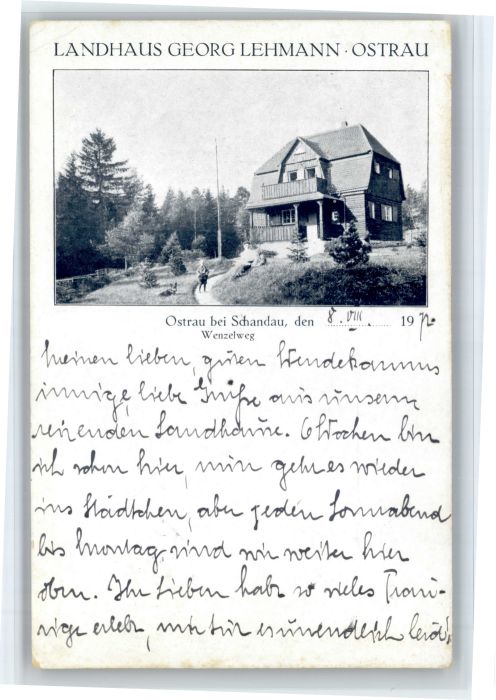 LANDHAUS GEORG LEHMANN · OSTRAU
Ostrau bei Schandau, den 8. VIII. 19
Wenzelweg
Meinen lieben, guten Wendekamms
innige, liebe Grüße aus unserm
reizenden Landhause. 6 Wochen bin
ich schon hier, nun geht es wieder
ins Städtchen, aber jeden Sonnabend
bis Montag sind wir weiter hier
oben. Ihr Lieben habt so vieles Trau-
rige erlebt, mir tut es unendlich leid,